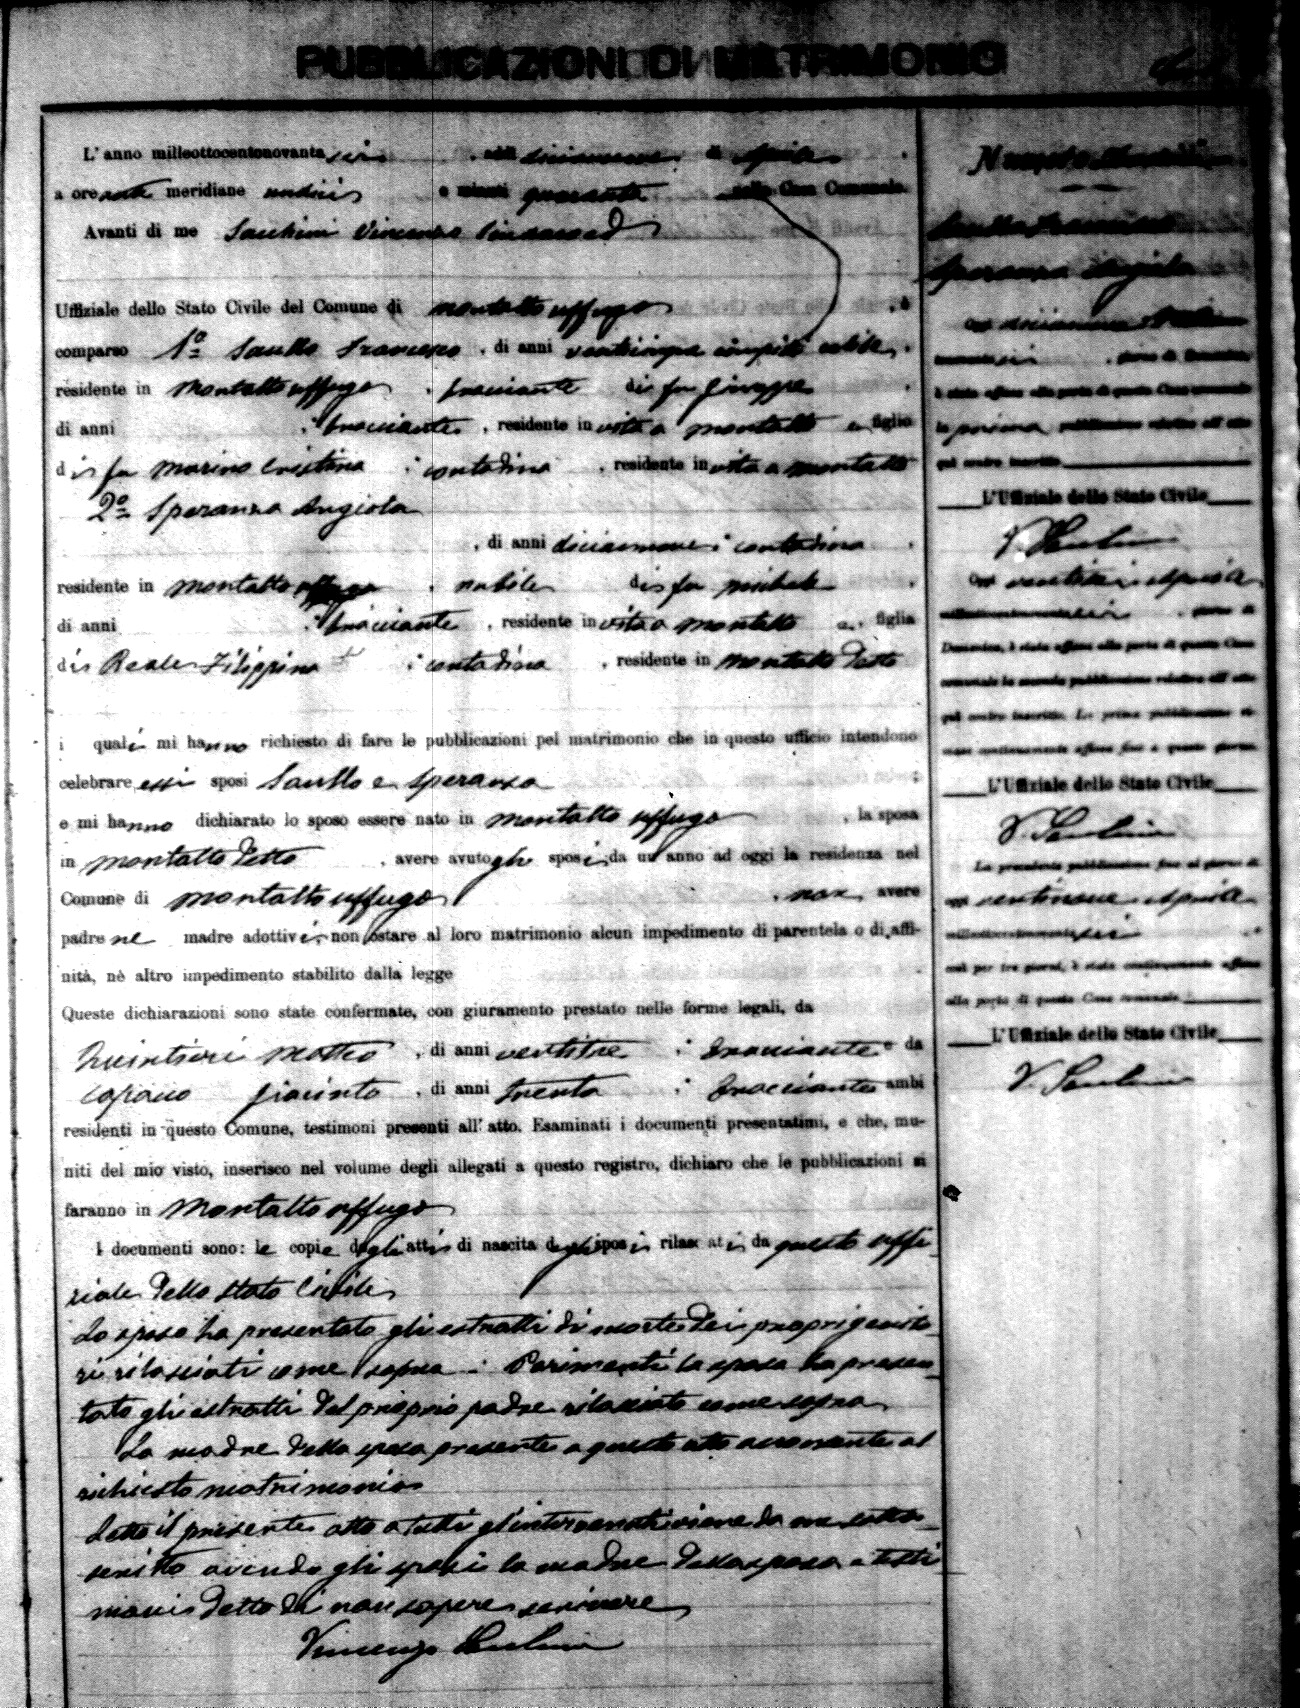 PUBBLICAZIONI DI MATRIMONIO
L'anno milleottocentonovanta sei, addì diciannove di Aprile
a ore ante meridiane undici e minuti quaranta nella Casa Comunale.
Avanti di me Sacchini Vincenzo Sindaco
Uffiziale dello Stato Civile del Comune di Montalto Uffugo, è
comparso 1º Saullo Francesco, di anni venticinque compiti celibe,
residente in Montalto Uffugo, bracciante dis fu Giuseppe
di anni , bracciante, residente in vita a Montalto e figlio
dis fu Marino Cristina , contadina , residente in vita a Montalto
2º Speranza Angiola
, di anni diciannove, contadina
residente in Montalto Uffugo , nubile dis fu Michele
di anni , bracciante, residente in vita a Montalto e figlia
dis Reale Filippina , contadina , residente in Montalto detto
i quali mi hanno richiesto di fare le pubblicazioni pel matrimonio che in questo ufficio intendono
celebrare essi sposi Saullo e Speranza
e mi hanno dichiarato lo sposo essere nato in Montalto Uffugo , la sposa
in Montalto detto , avere avuto gli sposi da un anno ad oggi la residenza nel
Comune di Montalto Uffugo , non avere
padre ne madre adottivi, non ostare al loro matrimonio alcun impedimento di parentela o di affi-
nità, nè altro impedimento stabilito dalla legge
Queste dichiarazioni sono state confermate, con giuramento prestato nelle forme legali, da
Quintieri Matteo , di anni ventitre , bracciante e da
Capano Giacinto , di anni trenta , bracciante ambi
residenti in questo Comune, testimoni presenti all'atto. Esaminati i documenti presentatimi, e che, mu-
niti del mio visto, inserisco nel volume degli allegati a questo registro, dichiaro che le pubblicazioni si
faranno in Montalto Uffugo
I documenti sono: le copie degli atti di nascita degli sposi rilasciati da questo uffi
ziale dello stato Civile
Lo sposo ha presentato gli estratti di morte dei proprii genito
ri rilasciati come sopra. Parimenti la sposa ha presen
tato gli estratti del proprio padre rilasciato come sopra
La madre della sposa presente a questo atto acconsente al
richiesto matrimonio
Letto il presente atto a tutti gl'intervenuti viene da me sotto
scritto avendo gli sposi la madre della sposa e testi
moni detto di non sapere scrivere
Vincenzo Sacchini
Numero
Saullo Francesco
Speranza Angiola
Oggi diciannove Aprile
sei , giorno di Domenica,
è stata affissa alla porta di questa Casa comunale
la prima pubblicazione relativa all'atto
qui contro inscritto.
L'Uffiziale dello Stato Civile
V. Sacchini
Oggi ventisei Aprile
milleottocentonovantasei , giorno di
Domenica, è stata affissa alla porta di questa Casa
comunale la seconda pubblicazione relativa all'atto
qui contro inscritto. La prima pubblicazione ri-
mase continuamente affissa fino a questo giorno.
L'Uffiziale dello Stato Civile
V. Sacchini
La precedente pubblicazione fino al giorno di
oggi ventinove Aprile
milleottocentonovantasei , e
così per tre giorni, è stata continuamente affissa
alla porta di questa Casa comunale
L'Uffiziale dello Stato Civile
V. Sacchini